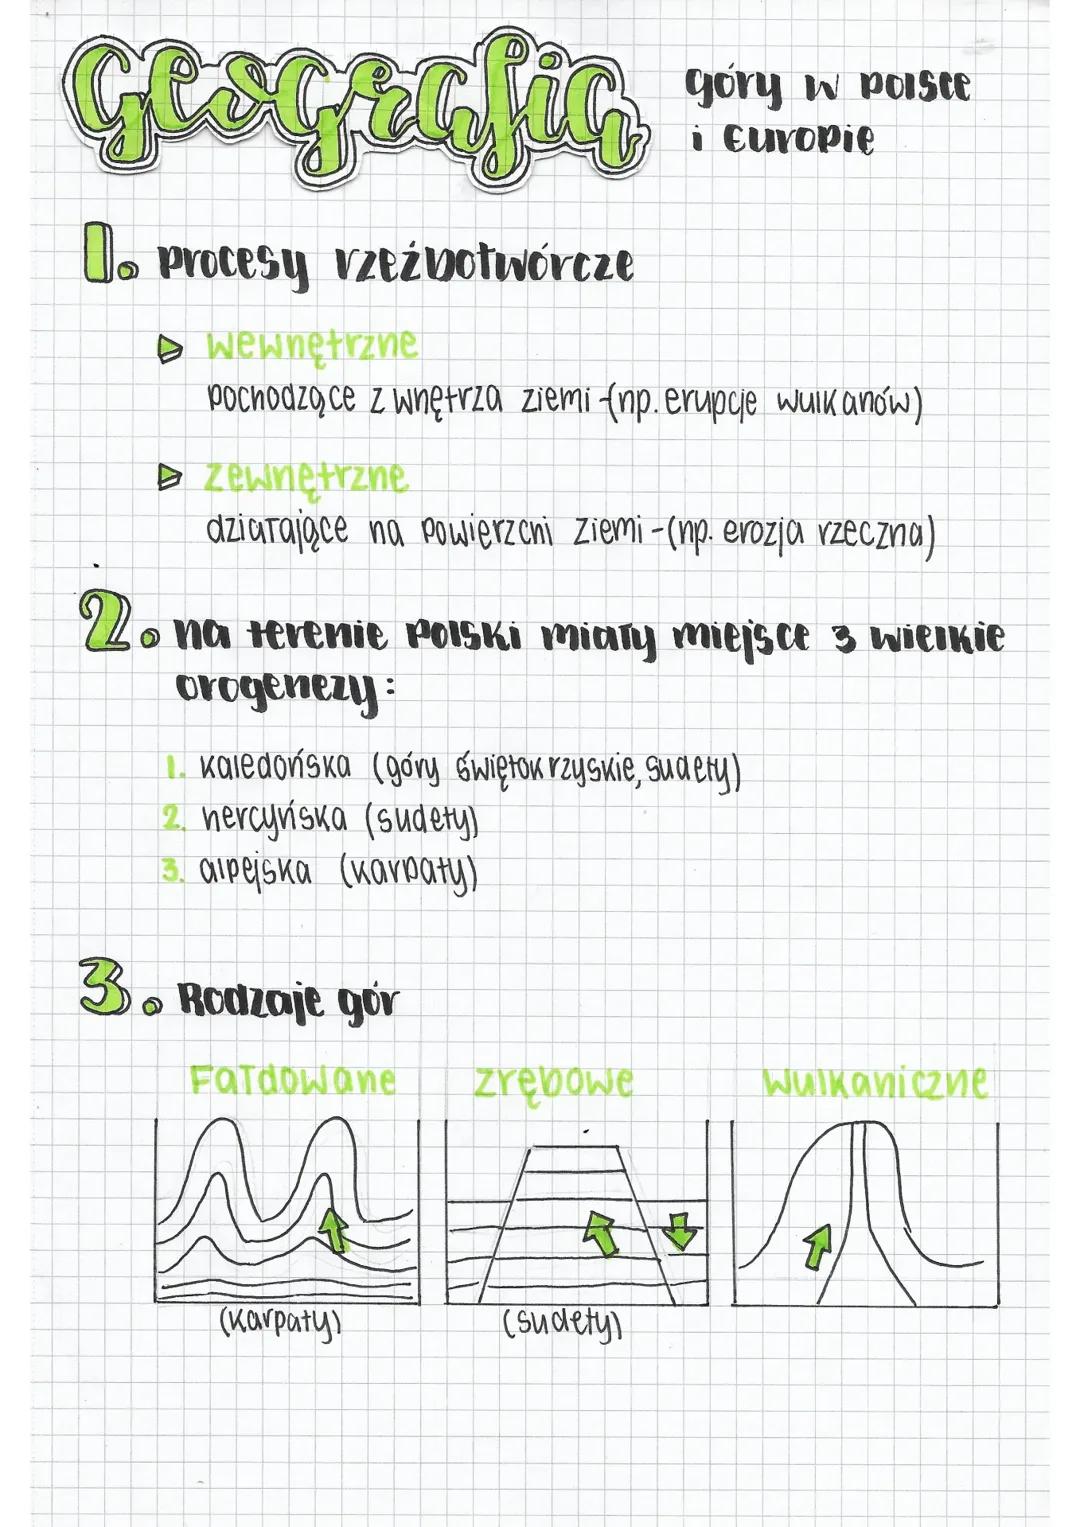 Geografia
góry w polsce
i Europie
1. procesy rzeźbotwórcze
wewnętrzne
pochodzące z wnętrza ziemi-(np. erupcje wulkanów)
zewnętrzne
działające na powierzchni ziemi-(np. erozja rzeczna)
2. na terenie Polski miały miejsce 3 wielkie
orogenezy:
1. kaledońska (góry świętokrzyskie, sudety)
2. hercyńska (sudety)
3. alpejska (karpaty)
3. Rodzaje gór
Fałdowane zrębowe wulkaniczne
(karpaty) (sudety)